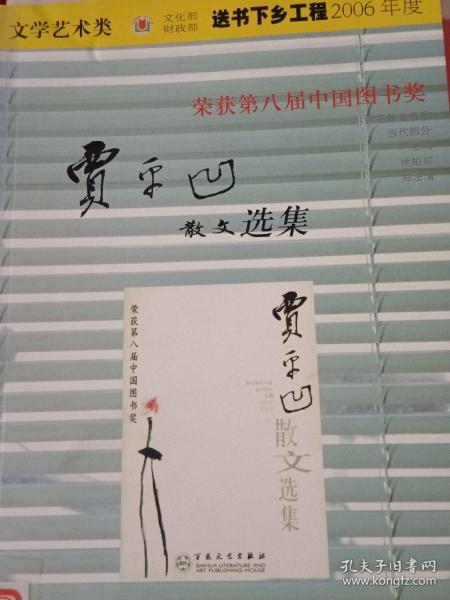 文学艺术类
文化部
财政部
送书下乡工程2006年度
荣获第八届中国图书奖
当代部分
贾平凹
散文选集
荣获第八届中国图书奖
贾平凹
散文选集
百花文艺出版社
BAIHUA LITERATURE AND
ART PUBLISHING HOUSE
孔夫子旧书网